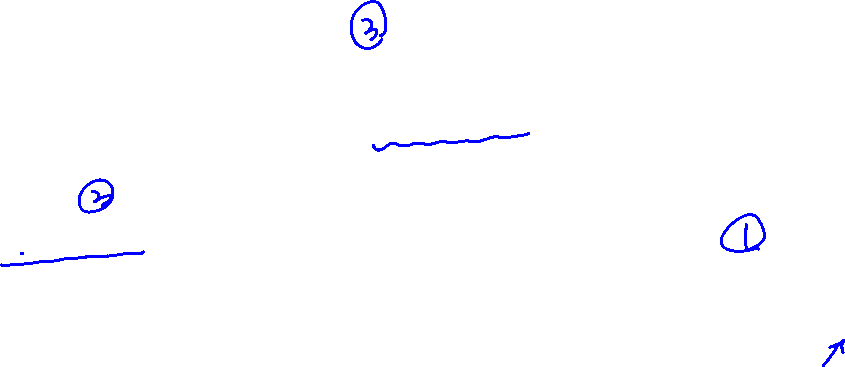 ③
②
①